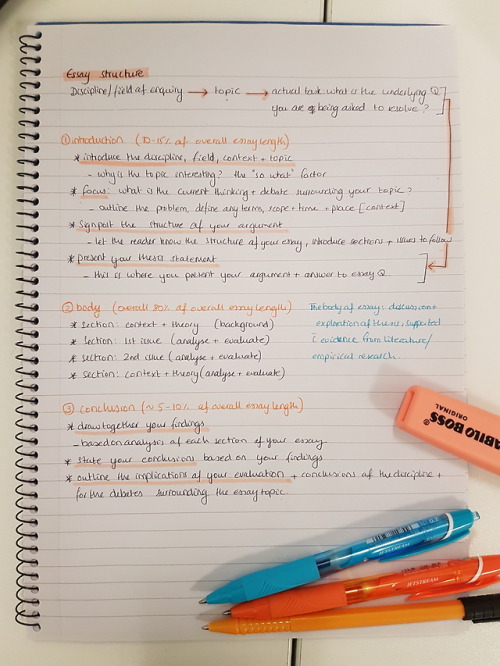 Essay structure
Discipline/field of enquiry → topic → actual task: what is the underlying Q
you are being asked to resolve?
① introduction (10-15% of overall essay length)
* introduce the discipline, field, context + topic
- why is the topic interesting? the "so what" factor
* focus: what is the current thinking + debate surrounding your topic?
- outline the problem, define any terms, scope + time + place [context]
* Signpost the structure of your argument
- let the reader know the structure of your essay, introduce sections + issues to follow
* present your thesis statement
- this is where you present your argument + answer to essay Q.
② body (overall 80% of overall essay length)
* section: context + theory (background)
* section: 1st issue (analyse + evaluate)
* section: 2nd issue (analyse + evaluate)
* section: context + theory (analyse + evaluate)
The body of essay: discussion +
exploration of thesis, supported
c̄ evidence from literature/
empirical research.
③ conclusion (~5-10% of overall essay length)
* draw together your findings
- based on analysis of each section of your essay
* state your conclusions based on your findings
* outline the implications of your evaluation + conclusions of the discipline +
for the debates surrounding the essay topic.
ABILO BOSS
ORIGINAL
JETSTREAM
JETSTREAM